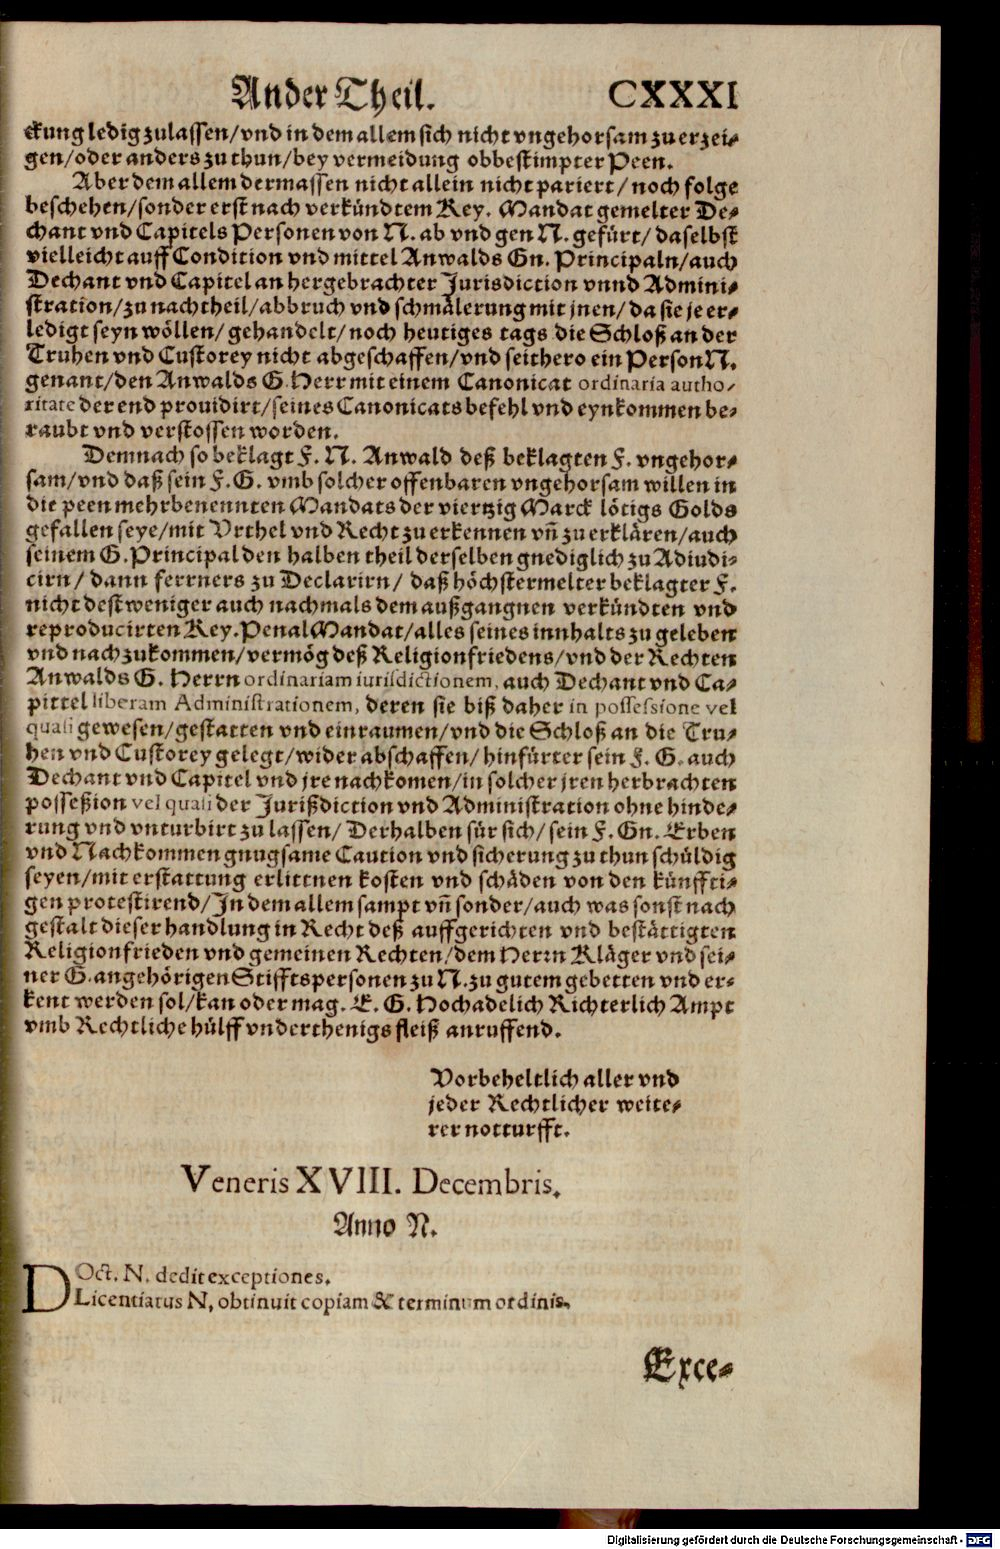 Ander Theil. CXXXI
ckung ledig zulassen/vnd in dem allem sich nicht vngehorsam zu erzei-
gen/oder anders zu thun/bey vermeidung obbestimpter Peen.
Aber dem allem dermassen nicht allein nicht pariert/noch folge
beschehen/sonder erst nach verkündtem Key. Mandat gemelter De-
chant vnd Capitels Personen von N. ab vnd gen N. gefürt/daselbst
vielleicht auff Condition vnd mittel Anwalds Gn. Principaln/auch
Dechant vnd Capitel an hergebrachter Jurisdiction vnnd Admini-
stration/zu nachtheil/abbruch vnd schmälerung mit jnen/da sie je er-
ledigt seyn wöllen/gehandelt/noch heutiges tags die Schloß an der
Truhen vnd Custorey nicht abgeschaffen/vnd seithero ein Person N.
genant/den Anwalds G. Herr mit einem Canonicat ordinaria autho-
ritate der end prouidirt/seines Canonicats befehl vnd eynkommen be-
raubt vnd verstossen worden.
Demnach so beklagt F. N. Anwald deß beklagten F. vngehor-
sam/vnd daß sein F. G. vmb solcher offenbaren vngehorsam willen in
die peen mehrbenennten Mandats der viertzig Marck lötigs Golds
gefallen seye/mit Vrthel vnd Recht zu erkennen vñ zu erklären/auch
seinem G. Principal den halben theil derselben gnediglich zu Adiudi-
cirn/dann ferrners zu Declarirn/daß höchstermelter beklagter F.
nicht dest weniger auch nachmals dem außgangnen verkündten vnd
reproducirten Key. Penal Mandat/alles seines innhalts zu geleben
vnd nachzukommen/vermög deß Religionfriedens/vnd der Rechten
Anwalds G. Herrn ordinariam iurisdictionem, auch Dechant vnd Ca-
pittel liberam Administrationem, deren sie biß daher in possessione vel
quasi gewesen/gestatten vnd einraumen/vnd die Schloß an die Tru-
hen vnd Custorey gelegt/wider abschaffen/hinfürter sein F. G. auch
Dechant vnd Capitel vnd jre nachkomen/in solcher jren herbrachten
posseßion vel quasi der Jurißdiction vnd Administration ohne hinde-
rung vnd vnturbirt zu lassen/Derhalben für sich/sein F. Gn. Erben
vnd Nachkommen gnugsame Caution vnd sicherung zu thun schüldig
seyen/mit erstattung erlittnen kosten vnd schäden von den künffti-
gen protestirend/In dem allem sampt vñ sonder/auch was sonst nach
gestalt dieser handlung in Recht deß auffgerichten vnd bestättigten
Religionfrieden vnd gemeinen Rechten/dem Herrn Kläger vnd sei-
ner G. angehörigen Stifftspersonen zu N. zu gutem gebetten vnd er-
kent werden sol/kan oder mag. E. G. Hochadelich Richterlich Ampt
vmb Rechtliche hülff vnderthenigs fleiß anruffend.
Vorbeheltlich aller vnd
jeder Rechtlicher weite-
rer notturfft.
Veneris XVIII. Decembris.
Anno N.
DOct. N. dedit exceptiones.
Licentiatus N, obtinuit copiam & terminum ordinis.
Exce-
Digitalisierung gefördert durch die Deutsche Forschungsgemeinschaft - DFG